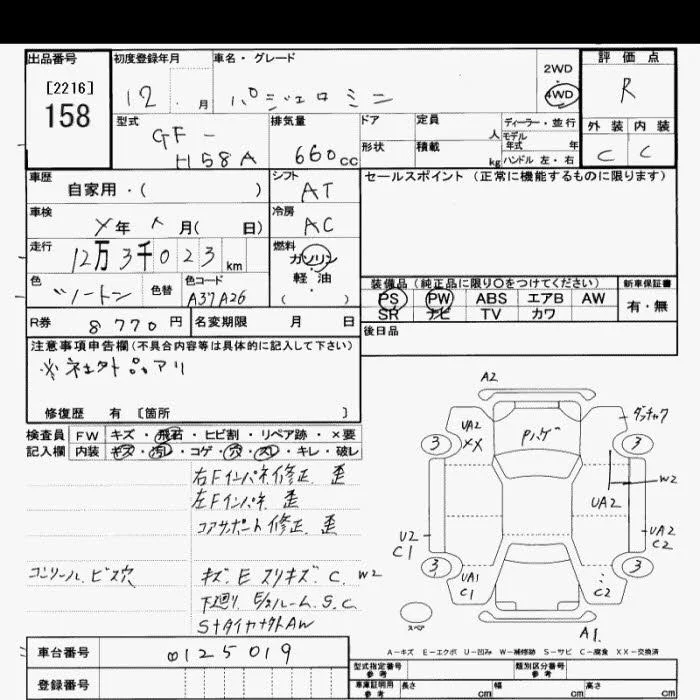 出品番号 初度登録年月 車名・グレード 評価点
[2216]
158
12 . 月 パジェロミニ 2WD
・
4WD R
型式 排気量 ドア 定員 人 ディーラー・並行 外装 内装
GF-
H58A 660cc 形状 積載 kg モデル年式 年 C C
ハンドル 左・右
車歴 自家用・( ) シフト AT セールスポイント(正常に機能するものに限ります)
車検 年 月( 日) 冷房 AC
走行 12万3千023km 燃料 ガソリン
・
軽油
・
( )
色 ツートン 色替 色コード A37A26 装備品(純正品に限り○をつけてください) 新車保証書
PS PW ABS エアB AW 有・無
SR ナビ TV カワ
R券 8770円 名変期限 月 日 後日品
注意事項申告欄(不具合内容等は具体的に記入して下さい)
修復歴 有 [箇所 ]
検査員 FW キズ・飛石・ヒビ割・リペア跡・×要
記入欄 内装 キズ・汚レ・コゲ・穴・スレ・キレ・破レ
右Fインパネ修正、歪
左Fインパネ、歪
コアサポート修正、歪
コンソール、ビス穴 キズ、E スリキズ、C、W2
下廻り、E/ルーム、S、C
SタイヤナットAW
A2
UA2
XX
Pハゲ
3 3
W2
UA2
U2
C1
UA2
C2
3 3
UA1
C1
C2
スペア
A1
A-キズ E-エクボ U-凹み W-補修跡 S-サビ C-腐食 XX-交換済
車台番号 0125019
型式指定番号
参考 類別区分番号
参考
登録番号 車庫証明用
参考 長さ cm 幅 cm 高さ cm